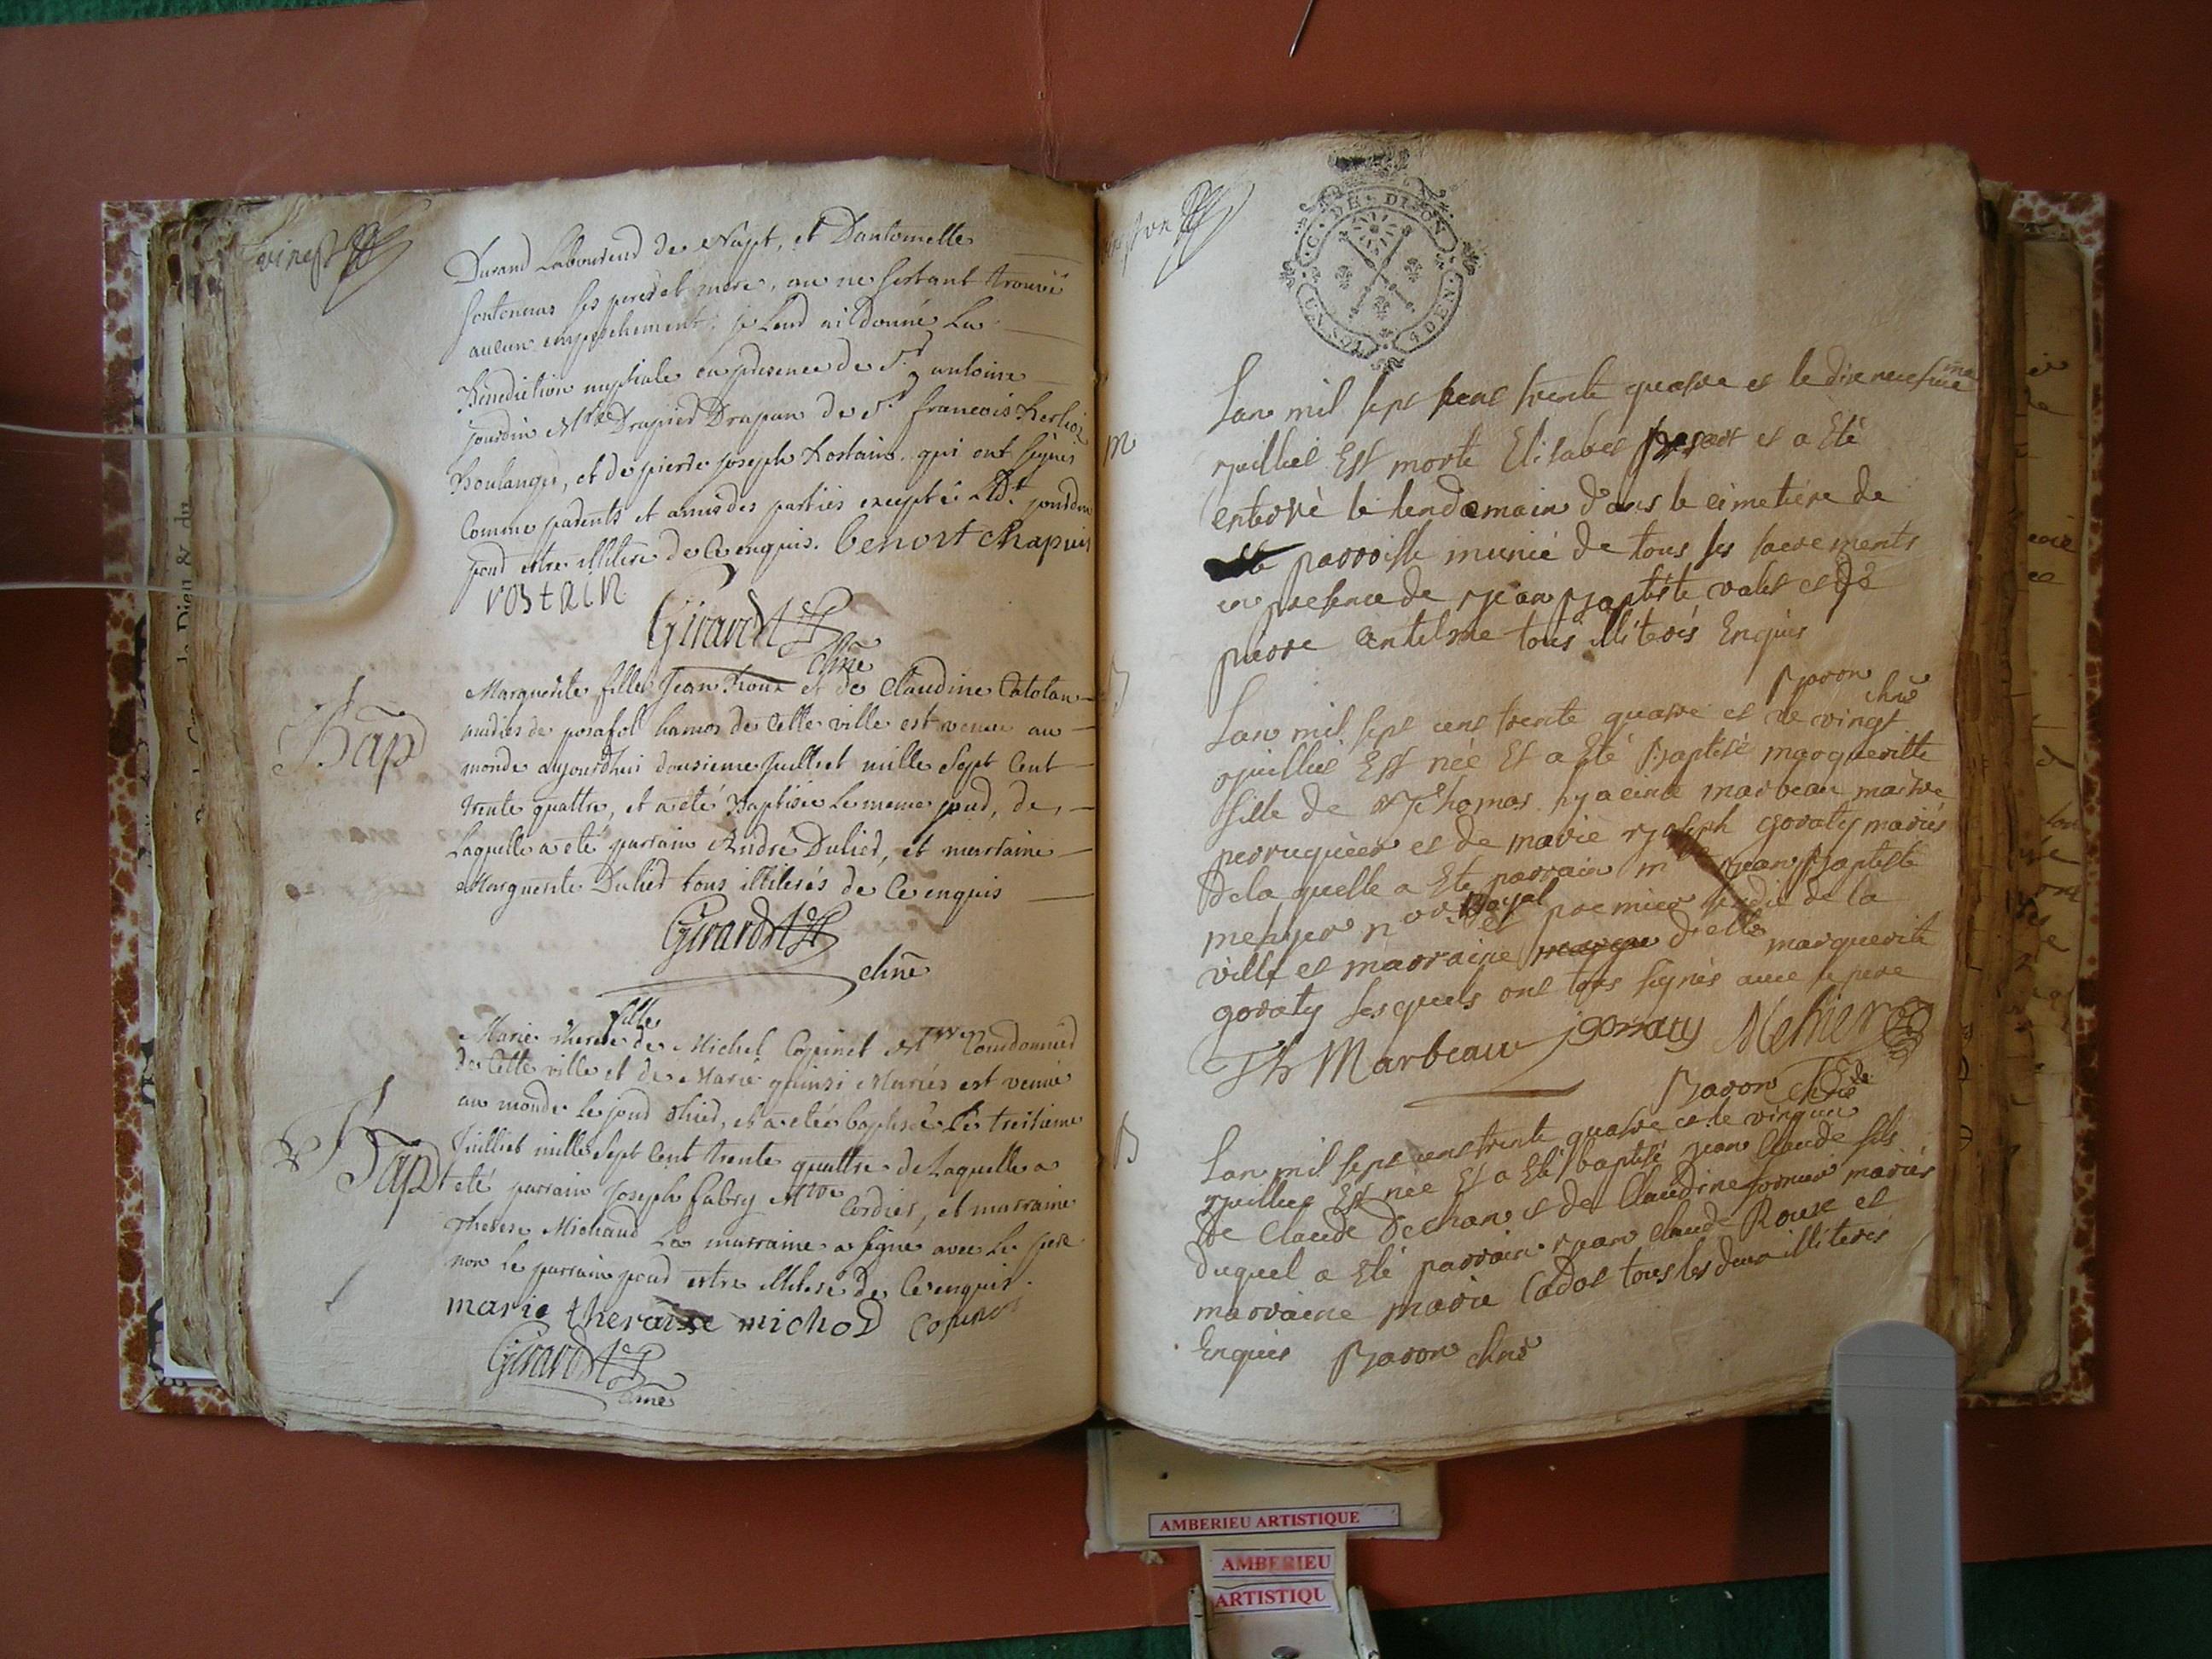 vingt
Durand Laboureur de Napt, et D'antoinette
fontenas ses pere et mere, au ne s'estant trouvé
aucun empechement, je leur ai donné la
Benediction nuptiale en presence de Sr antoine
jourdin Mtre Drapier Drapan de Sr francois
Boulanger, et de pierre joseph Rostain qui ont signés
Comme parents et amis des parties excepté led.t jourdin
pour estre illiteré de ce enquis. benoit chapuis
rostain
Girard
chne
Bap
Marguerite fille Jean Roux et de Claudine Catolan
mariés de hamos de Cette ville est venue au
monde aujourdhui dousieme Juillet mille Sept Cent
trente quattre, et a eté Baptisée le meme jour, de
Laquelle a eté parrain André Dulier, et marraine
Marguerite Dulier tous illiterés de Ce enquis
Girard
chne
Bapt
fille
Marie therese de Michel Copinet Mtre Cordonnier
de Cette ville et de Marie Mariés est venüe
au monde le jour d'hier, et a eté baptisée le treisieme
Juillet mille Sept Cent trente quattre de Laquelle a
eté parrain Joseph fabry Mtre Cordier, et marraine
therese Michaud La marraine a signé avec le pere
non le parrain pour estre illiteré de Ce enquis.
marie theraise michod
Girard
chne
G. DE DIJON
UN SOL 4 DEN
m
Lan mil sept cent trente quatre et le dixneufvieme
juillet Est morte Elisabet et a Eté
enterré le lendemain dans le cimetiére de
la parroisse munié de tous les sacrements
en presence de jean Baptiste valet et de
pierre Antelme tous illiterés Enquis
Baron chne
B
Lan mil sept cens trente quatre et le vingt
juillet Est née Et a Eté Baptisé margueritte
fille de Sr Thomas hyacint marbeau maitre
perruquier et de marie joseph goraty mariés
de la quelle a Eté parrain mtre jean Baptiste
mehyer nore Royal et premier sindic de la
ville et marraine delle marguerite
goraty lesquels ont tous signés avec le pere
Th Marbeau goraty Mehier
Baron chne
B
Lan mil sept cens trente quatre et le vingun
juillet Est née Et a Eté baptisé jean claude fils
de Claude Dechan et de Claudine fornier mariés
duquel a Eté parrain jean claude Rouse et
marraine marie Cadot tous les deux illiterés
Enquis Baron chne
AMBERIEU ARTISTIQUE
AMBERIEU
ARTISTIQU